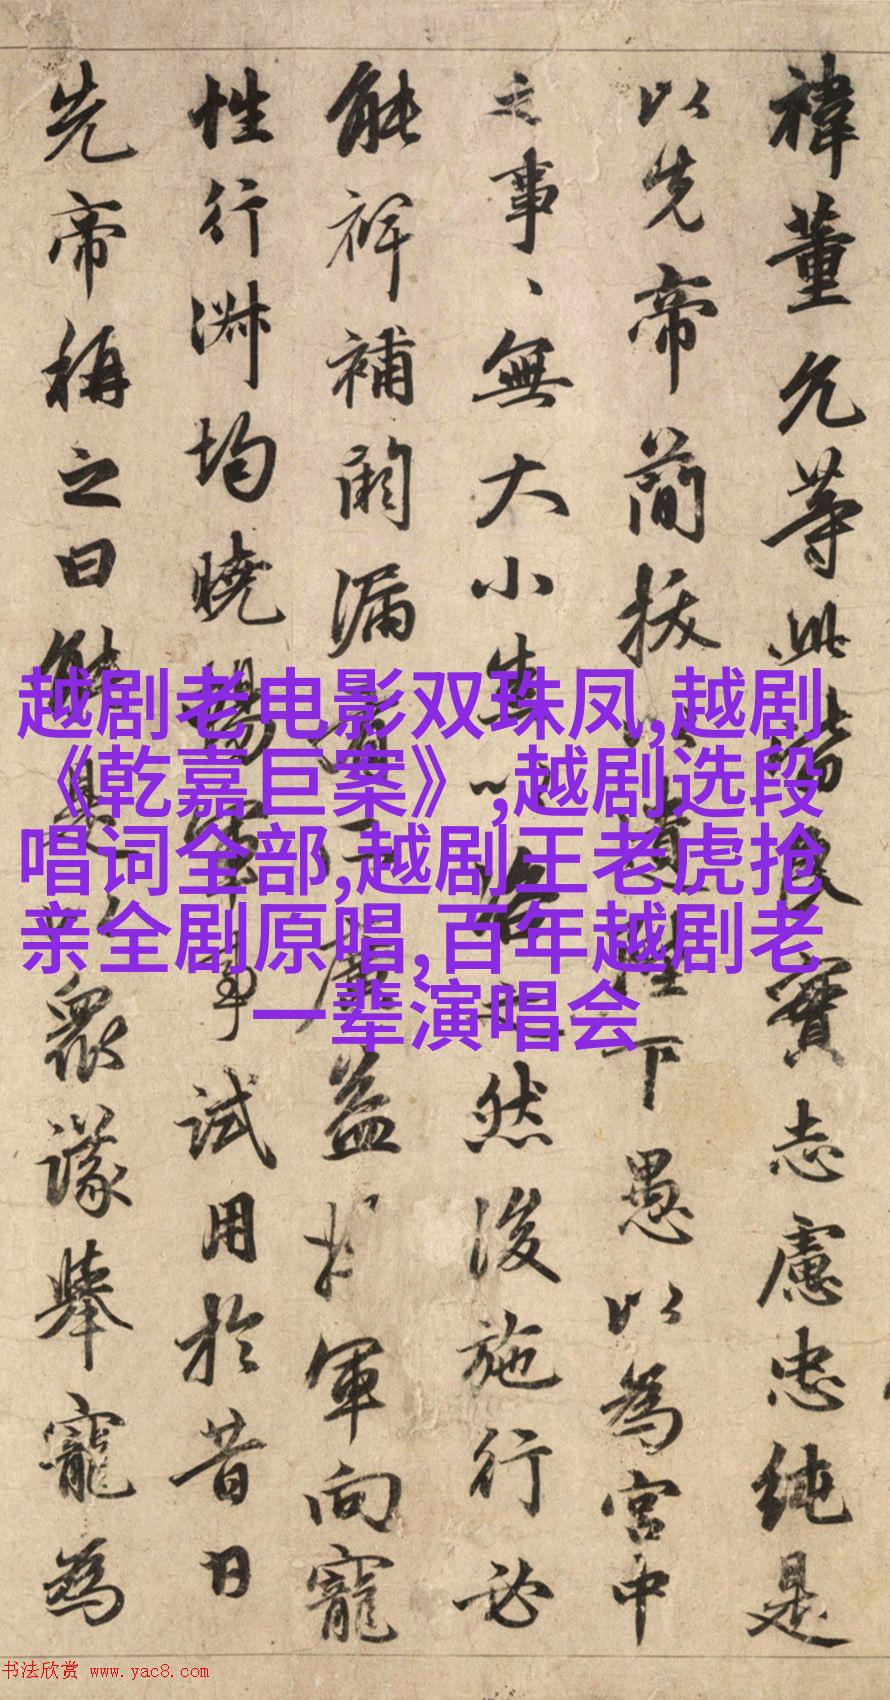 禕董允等此皆良實志慮忠純是
以先帝簡拔以遺陛下愚以為宮中
之事、無大小悉以咨之然後施行必
能裨補闕漏有所廣益將軍向寵
性行淑均曉暢軍事試用於昔日
先帝稱之曰能是以眾議舉寵為
越剧老电影双珠凤,越剧
《乾嘉巨案》,越剧选段
唱词全部,越剧王老虎抢
亲全剧原唱,百年越剧老
一辈演唱会
书法欣赏 www.yac8.com